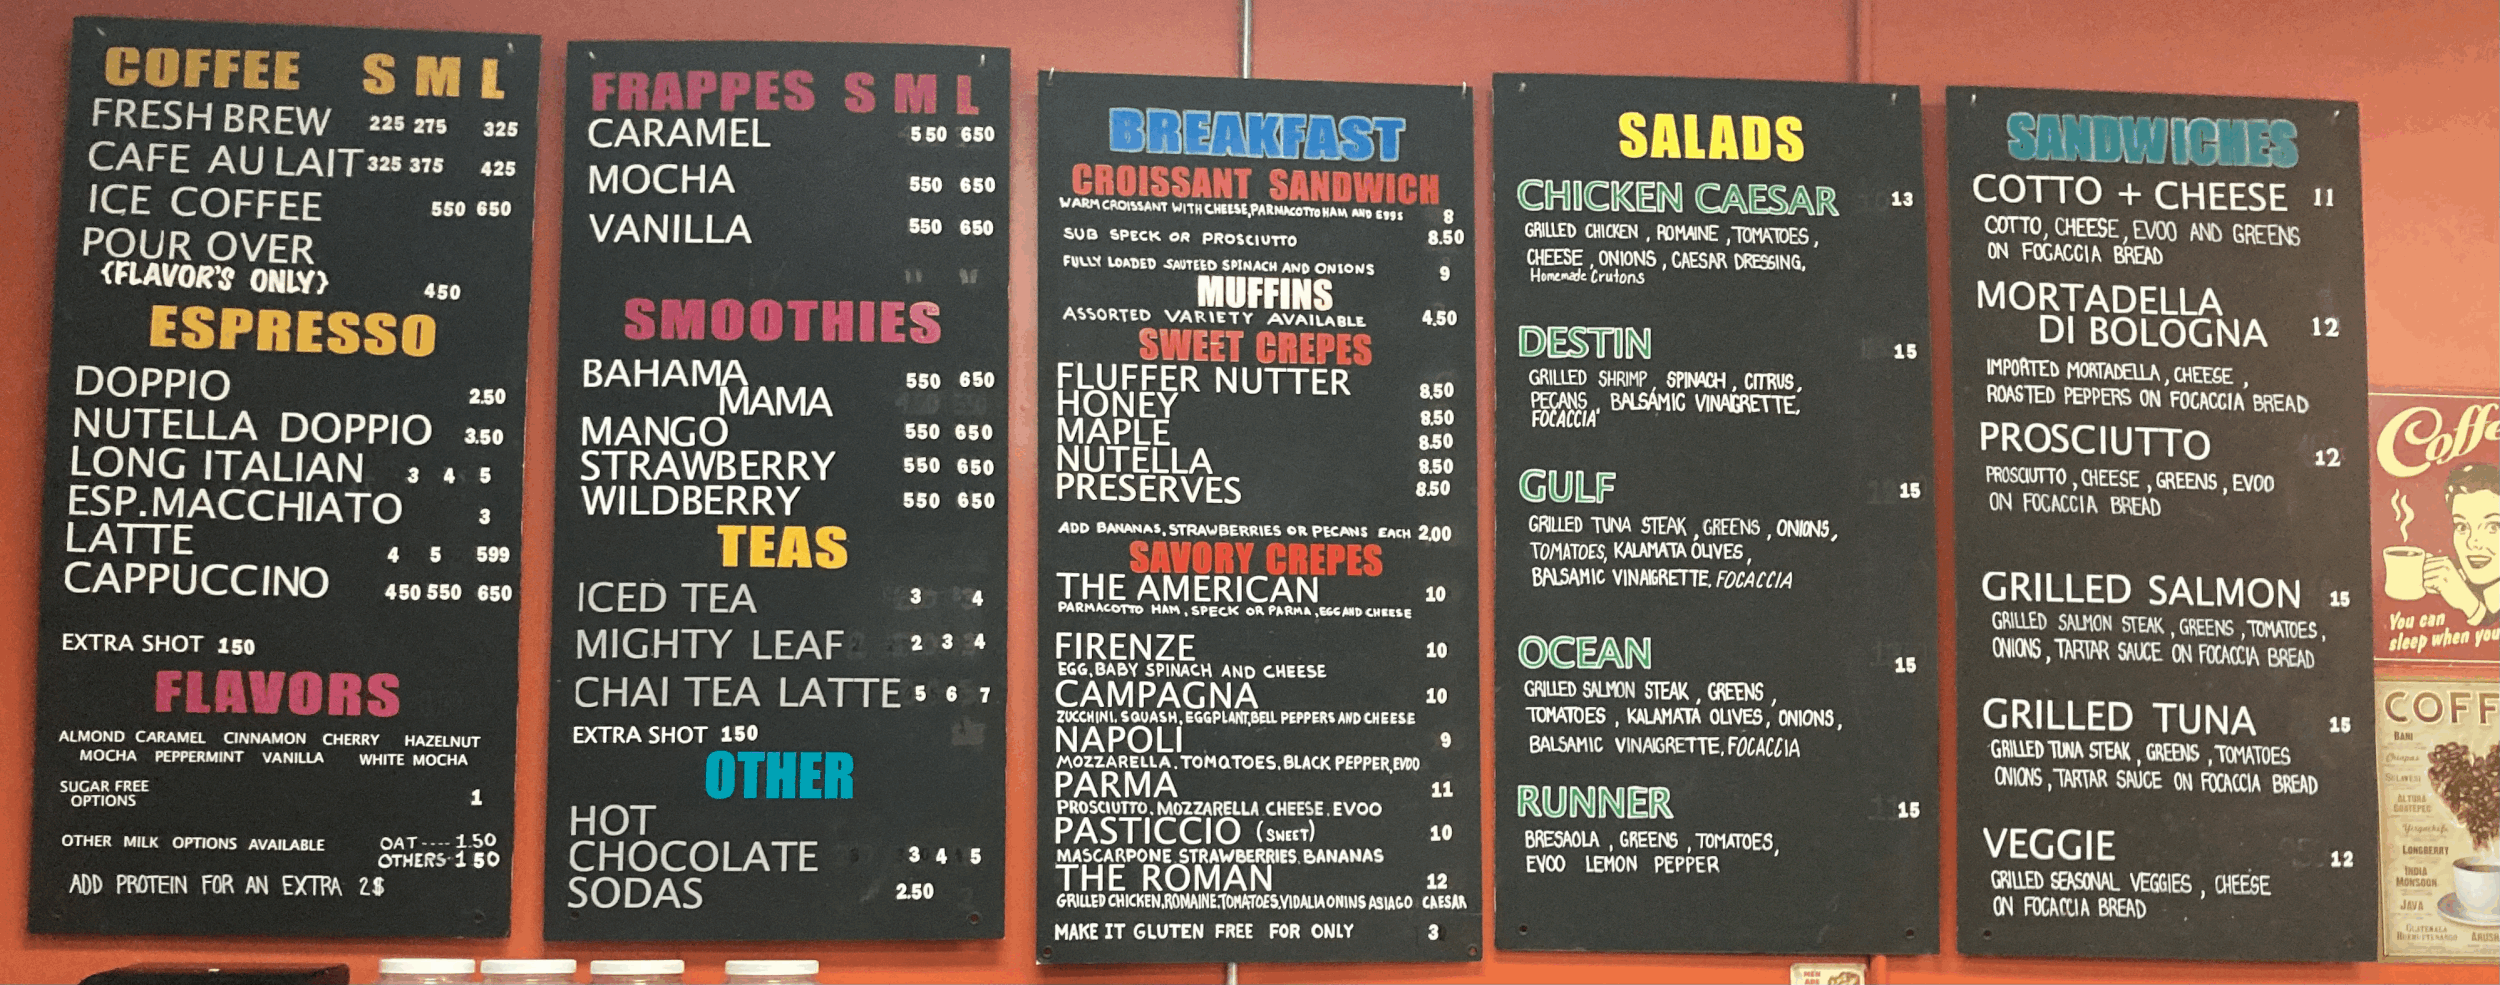 COFFEE S M L
FRESH BREW 225 275 325
CAFE AU LAIT 325 375 425
ICE COFFEE 550 650
POUR OVER
{FLAVOR'S ONLY} 450
ESPRESSO
DOPPIO 2.50
NUTELLA DOPPIO 3.50
LONG ITALIAN 3 4 5
ESP.MACCHIATO 3
LATTE 4 5 599
CAPPUCCINO 450 550 650
EXTRA SHOT 150
FLAVORS
ALMOND CARAMEL CINNAMON CHERRY HAZELNUT
MOCHA PEPPERMINT VANILLA WHITE MOCHA
SUGAR FREE
OPTIONS 1
OTHER MILK OPTIONS AVAILABLE OAT---- 1.50
OTHERS-1 50
ADD PROTEIN FOR AN EXTRA 2$
FRAPPES S M L
CARAMEL 550 650
MOCHA 550 650
VANILLA 550 650
SMOOTHIES
BAHAMA 550 650
MAMA
MANGO 550 650
STRAWBERRY 550 650
WILDBERRY 550 650
TEAS
ICED TEA 3 4
MIGHTY LEAF 2 3 4
CHAI TEA LATTE 5 6 7
EXTRA SHOT 150
OTHER
HOT
CHOCOLATE 3 4 5
SODAS 2.50
BREAKFAST
CROISSANT SANDWICH
WARM CROISSANT WITH CHEESE, PARMACOTTO HAM AND EGGS 8
SUB SPECK OR PROSCIUTTO 8.50
FULLY LOADED SAUTEED SPINACH AND ONIONS 9
MUFFINS
ASSORTED VARIETY AVAILABLE 4.50
SWEET CREPES
FLUFFER NUTTER 8.50
HONEY 8.50
MAPLE 8.50
NUTELLA 8.50
PRESERVES 8.50
ADD BANANAS, STRAWBERRIES OR PECANS EACH 2.00
SAVORY CREPES
THE AMERICAN 10
PARMACOTTO HAM, SPECK OR PARMA, EGG AND CHEESE
FIRENZE 10
EGG, BABY SPINACH AND CHEESE
CAMPAGNA 10
ZUCCHINI, SQUASH, EGGPLANT, BELL PEPPERS AND CHEESE
NAPOLI 9
MOZZARELLA, TOMATOES, BLACK PEPPER, EVOO
PARMA 11
PROSCIUTTO, MOZZARELLA CHEESE, EVOO
PASTICCIO (SWEET) 10
MASCARPONE STRAWBERRIES, BANANAS
THE ROMAN 12
GRILLED CHICKEN, ROMAINE, TOMATOES, VIDALIA ONINS ASIAGO CAESAR
MAKE IT GLUTEN FREE FOR ONLY 3
SALADS
CHICKEN CAESAR 13
GRILLED CHICKEN, ROMAINE, TOMATOES,
CHEESE, ONIONS, CAESAR DRESSING,
Homemade Crutons
DESTIN 15
GRILLED SHRIMP, SPINACH, CITRUS,
PECANS, BALSAMIC VINAIGRETTE,
FOCACCIA
GULF 15
GRILLED TUNA STEAK, GREENS, ONIONS,
TOMATOES, KALAMATA OLIVES,
BALSAMIC VINAIGRETTE, FOCACCIA
OCEAN 15
GRILLED SALMON STEAK, GREENS,
TOMATOES, KALAMATA OLIVES, ONIONS,
BALSAMIC VINAIGRETTE, FOCACCIA
RUNNER 15
BRESAOLA, GREENS, TOMATOES,
EVOO LEMON PEPPER
SANDWICHES
COTTO + CHEESE 11
COTTO, CHEESE, EVOO AND GREENS
ON FOCACCIA BREAD
MORTADELLA
DI BOLOGNA 12
IMPORTED MORTADELLA, CHEESE,
ROASTED PEPPERS ON FOCACCIA BREAD
PROSCIUTTO 12
PROSCIUTTO, CHEESE, GREENS, EVOO
ON FOCACCIA BREAD
GRILLED SALMON 15
GRILLED SALMON STEAK, GREENS, TOMATOES,
ONIONS, TARTAR SAUCE ON FOCACCIA BREAD
GRILLED TUNA 15
GRILLED TUNA STEAK, GREENS, TOMATOES
ONIONS, TARTAR SAUCE ON FOCACCIA BREAD
VEGGIE 12
GRILLED SEASONAL VEGGIES, CHEESE
ON FOCACCIA BREAD
Coffe
You can
sleep when you
COFF
BANI
Chiapas
SULAWESI
ALTURA
COATEPEC
LONGBERRY
INDIA
MONSOON
JAVA